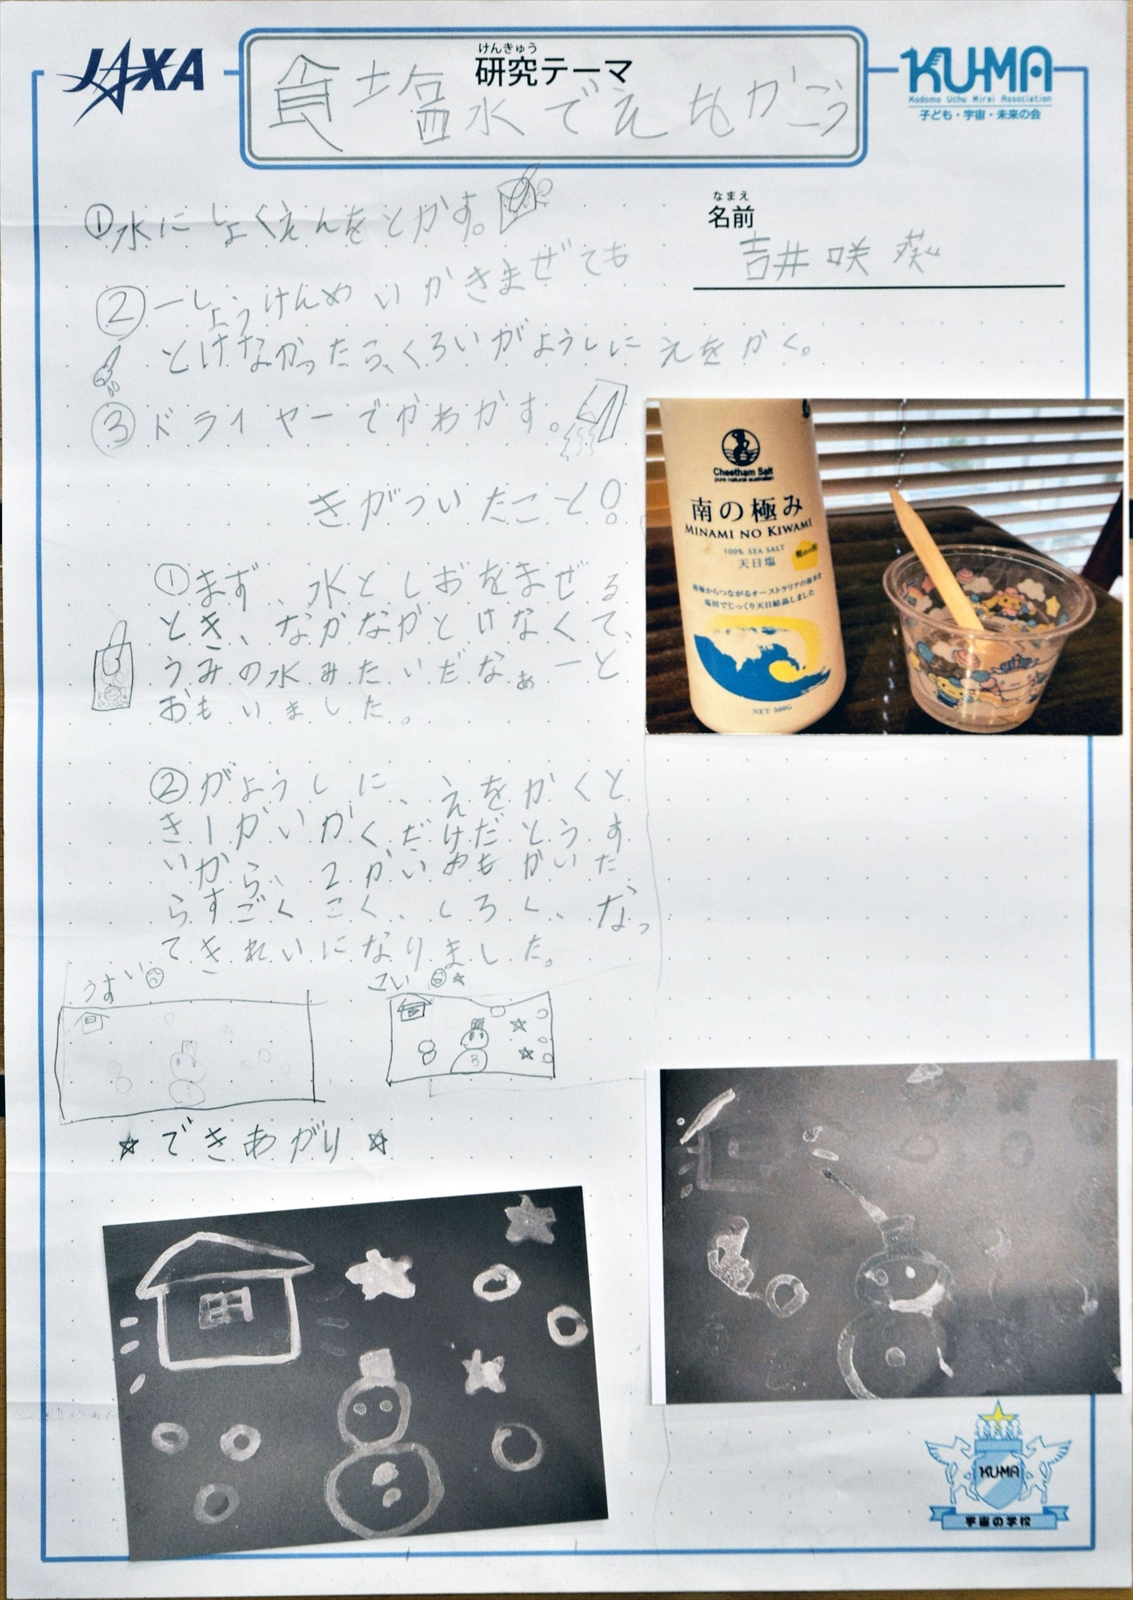 JAXA
けんきゅう
研究テーマ
食塩水でえをかこう
KU-MA
Kodomo Uchu Mirai Association
子ども・宇宙・未来の会
なまえ
名前
吉井咲葵
①水にしょくえんをとかす。
②一しょうけんめいかきまぜても
とけなかったら、くろいがようしにえをかく。
③ドライヤーでかわかす。
きがついたこと!
①まず、水としおをまぜる
とき、なかなかとけなくて、
うみの水みたいだなぁーと
おもいました。
②がようしに、えをかくと
き1かいかくだけだとうす
いから、2かいめもかいた
らすごくこく、しろく、なっ
てきれいになりました。
うすい
こい
☆できあがり☆
Cheetham Salt
pure natural australian
南の極み
MINAMI NO KIWAMI
100% SEA SALT
天日塩
南極からつながるオーストラリアの海水を
塩田でじっくり天日結晶しました
NET 500G
KU-MA
宇宙の学校